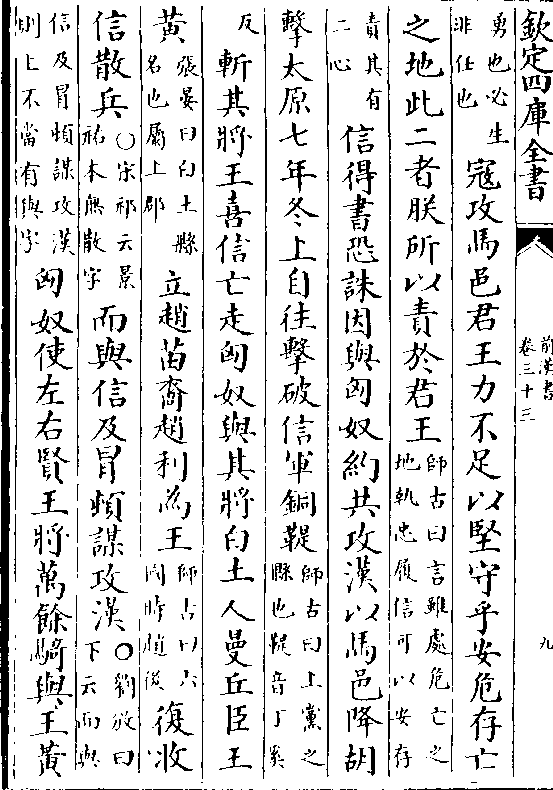 欽定四庫全書
前漢書
卷三十三
九
勇也必生
非任也
寇攻馬邑君王力不足以堅守乎安危存亡
之地此二者朕所以責於君王
師古曰言雖處危亡之
地執忠履信可以安存
責其有
二心
信得書恐誅因與匈奴約共攻漢以馬邑降胡
擊太原七年冬上自往擊破信軍銅鞮
師古曰上黨之
縣也鞮音丁奚
反
斬其將王喜信亡走匈奴與其將白土人曼丘臣王
黄
張晏曰白土縣
名也屬上郡
立趙苗裔趙利為王
師古曰六
國時趙後
復收
信散兵
○宋祁云景
祐本無散字
而與信及冒頓謀攻漢
○劉攽曰
下云而與
信及冒頓謀攻漢
則上不當有與字
匈奴使左右賢王將萬餘騎與王黄